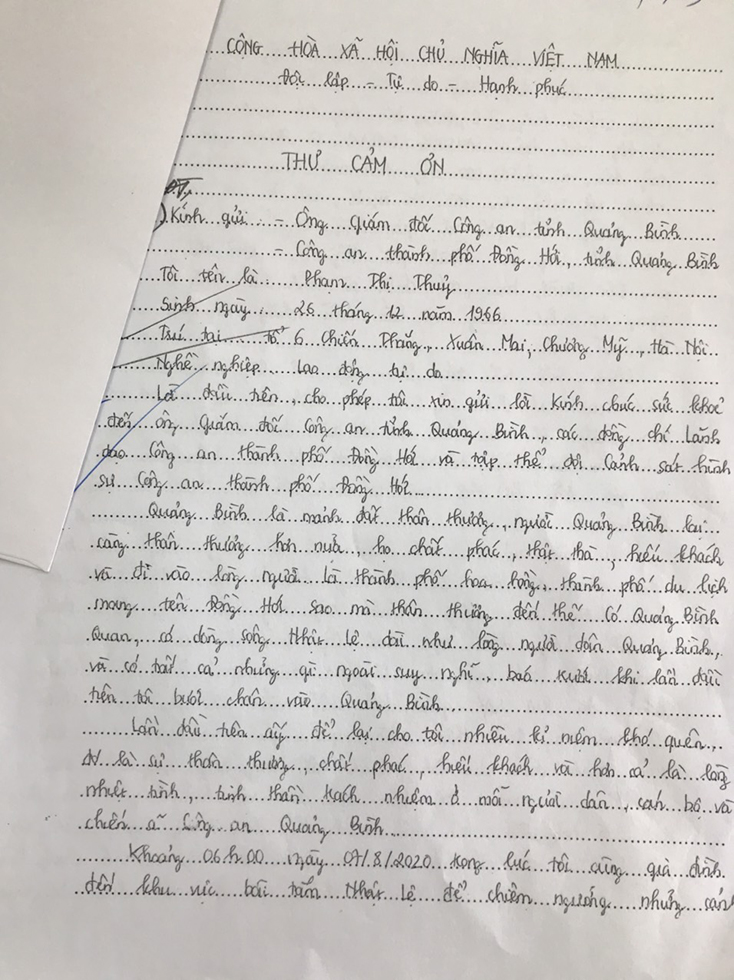 CỘNG HÒA XÃ HỘI CHỦ NGHĨA VIỆT NAM
Độc lập - Tự do - Hạnh phúc
THƯ CẢM ƠN
Kính gửi : - Ông Giám đốc Công an tỉnh Quảng Bình
- Công an thành phố Đồng Hới, tỉnh Quảng Bình
Tôi tên là Phạm Thị Thuỷ
Sinh ngày 26 tháng 12 năm 1966
Trú tại tổ 6 Chiến Thắng, Xuân Mai, Chương Mỹ, Hà Nội
Nghề nghiệp Lao động tự do
Lời đầu tiên, cho phép tôi xin gửi lời kính chúc sức khoẻ
đến ông Giám đốc Công an tỉnh Quảng Bình, các đồng chí Lãnh
đạo Công an thành phố Đồng Hới và tập thể đội Cảnh sát hình
sự Công an thành phố Đồng Hới
Quảng Bình là mảnh đất thân thương, người Quảng Bình lại
càng thân thương hơn nữa, họ chất phác, thật thà, hiếu khách
và đi vào lòng người là thành phố hoa hồng, thành phố du lịch
mang tên Đồng Hới sao mà thân thương đến thế Có Quảng Bình
Quan, có dòng sông Nhật Lệ dài như lòng người dân Quảng Bình,
và có tất cả những gì ngoài suy nghĩ, bao khi lần đầu
tiên tôi bước chân vào Quảng Bình
Lần đầu tiên ấy để lại cho tôi nhiều kỉ niệm khó quên,
đó là sự thân thương, chất phác, hiếu khách và hơn cả là lòng
nhiệt tình, tinh thần trách nhiệm ở mỗi người dân, cán bộ và
chiến sĩ Công an Quảng Bình
Khoảng 06h00 ngày 07/8/2020 trong lúc tôi cùng gia đình
đến khu vực bãi tắm Nhật Lệ để chiêm ngưỡng những cảnh